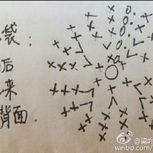 袋：
后
来
背面.
weibo.com/